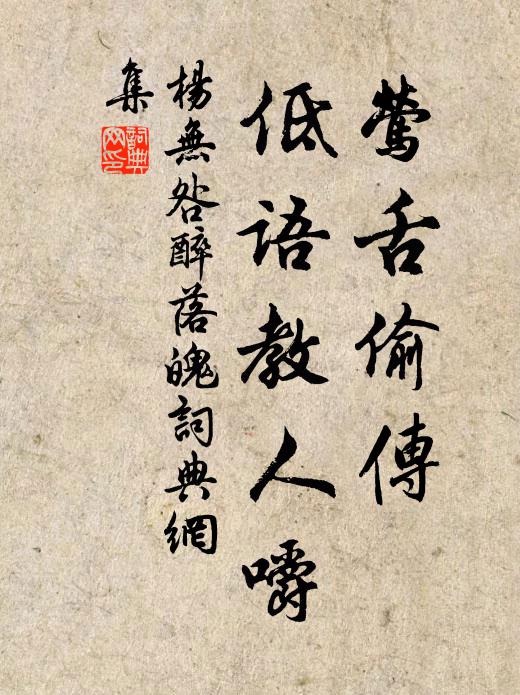 鶯舌偷傳
低語教人嚼
楊無咎醉落魄詞典網
集
詞典
网印